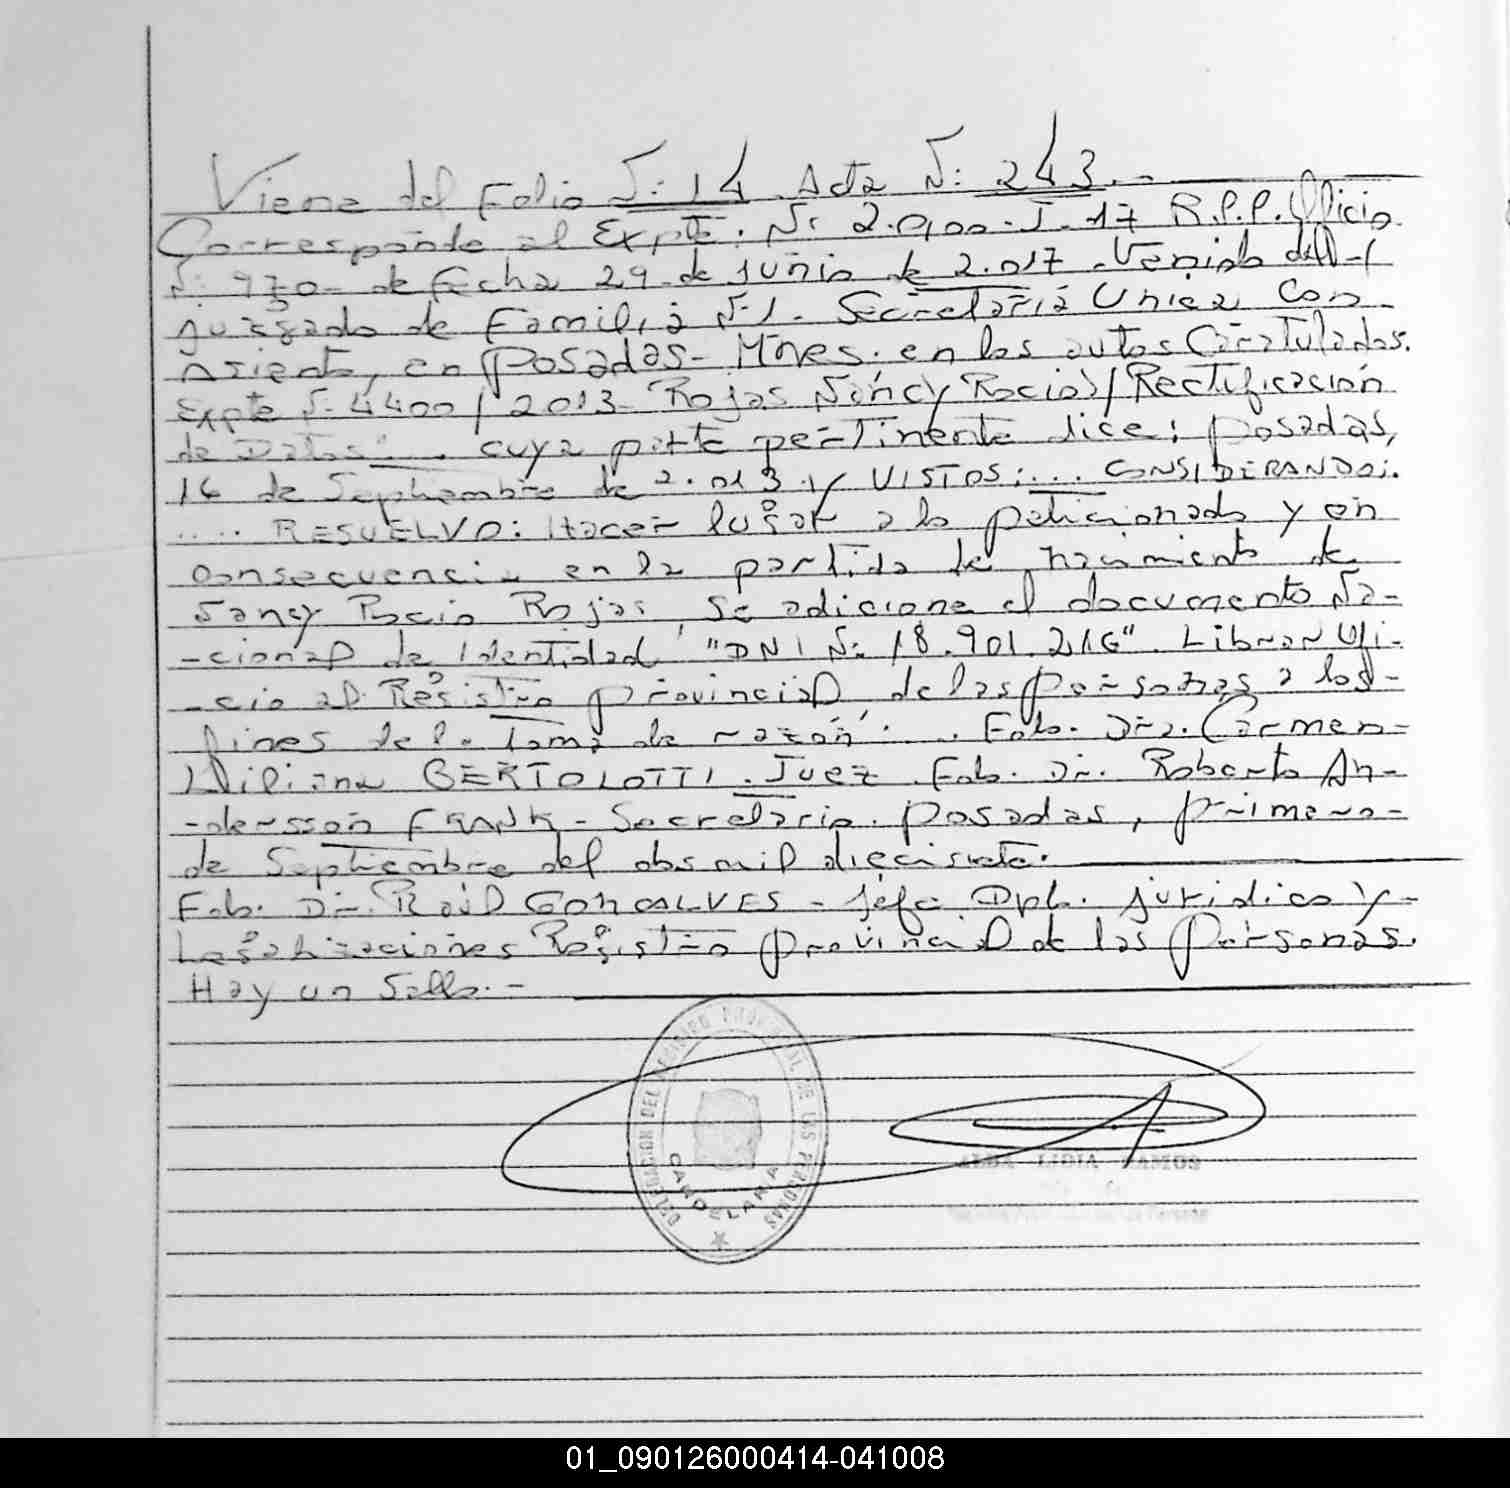 Viene del Folio N: 14 Acta N: 243.-
Corresponde al Expte. N: 2.0100-J-17 R.P.P. Oficio
N: 970- de fecha 29-de junio de 2.017. Venido del-(
juzgado de Familia N-1. Secretaria Unica Con
Asiento, en Posadas- Mnes. en los autos Caratulados.
Expte N-4400/2013- Rojas Nancy Rocio s/ Rectificación
de Datos"... cuya parte pertinente dice: Posadas,
16 de Septiembre de 2.013 y VISTOS:... CONSIDERANDO:.
.... RESUELVO: Hacer lugar a lo peticionado y en
consecuencia en la partida de nacimiento de
Nancy Rocio Rojas, se adicione el documento Na-
-cional de Identidad "DNI N: 18.901.216". Librar Ofi-
-cio al Registro provincial de las personas a los-
fines de la toma de razón".... Fdo. Dra. Carmen-
Liliana BERTOLOTTI. Juez. Fdo. Dr. Roberto An-
-dersson FRANK- Secretario. Posadas, primero-
de Septiembre del dos mil diecisiete.
Fdo. Dr. Raúl GONCALVES - Jefe Dpto. juridico y-
Legalizaciones Registro provincial de las Personas.
Hay un Sello.-
DELEGACION DEL REGISTRO PROVINCIAL DE LAS PERSONAS
CANDELARIA
ALBA LIDIA RAMOS
01_090126000414-041008